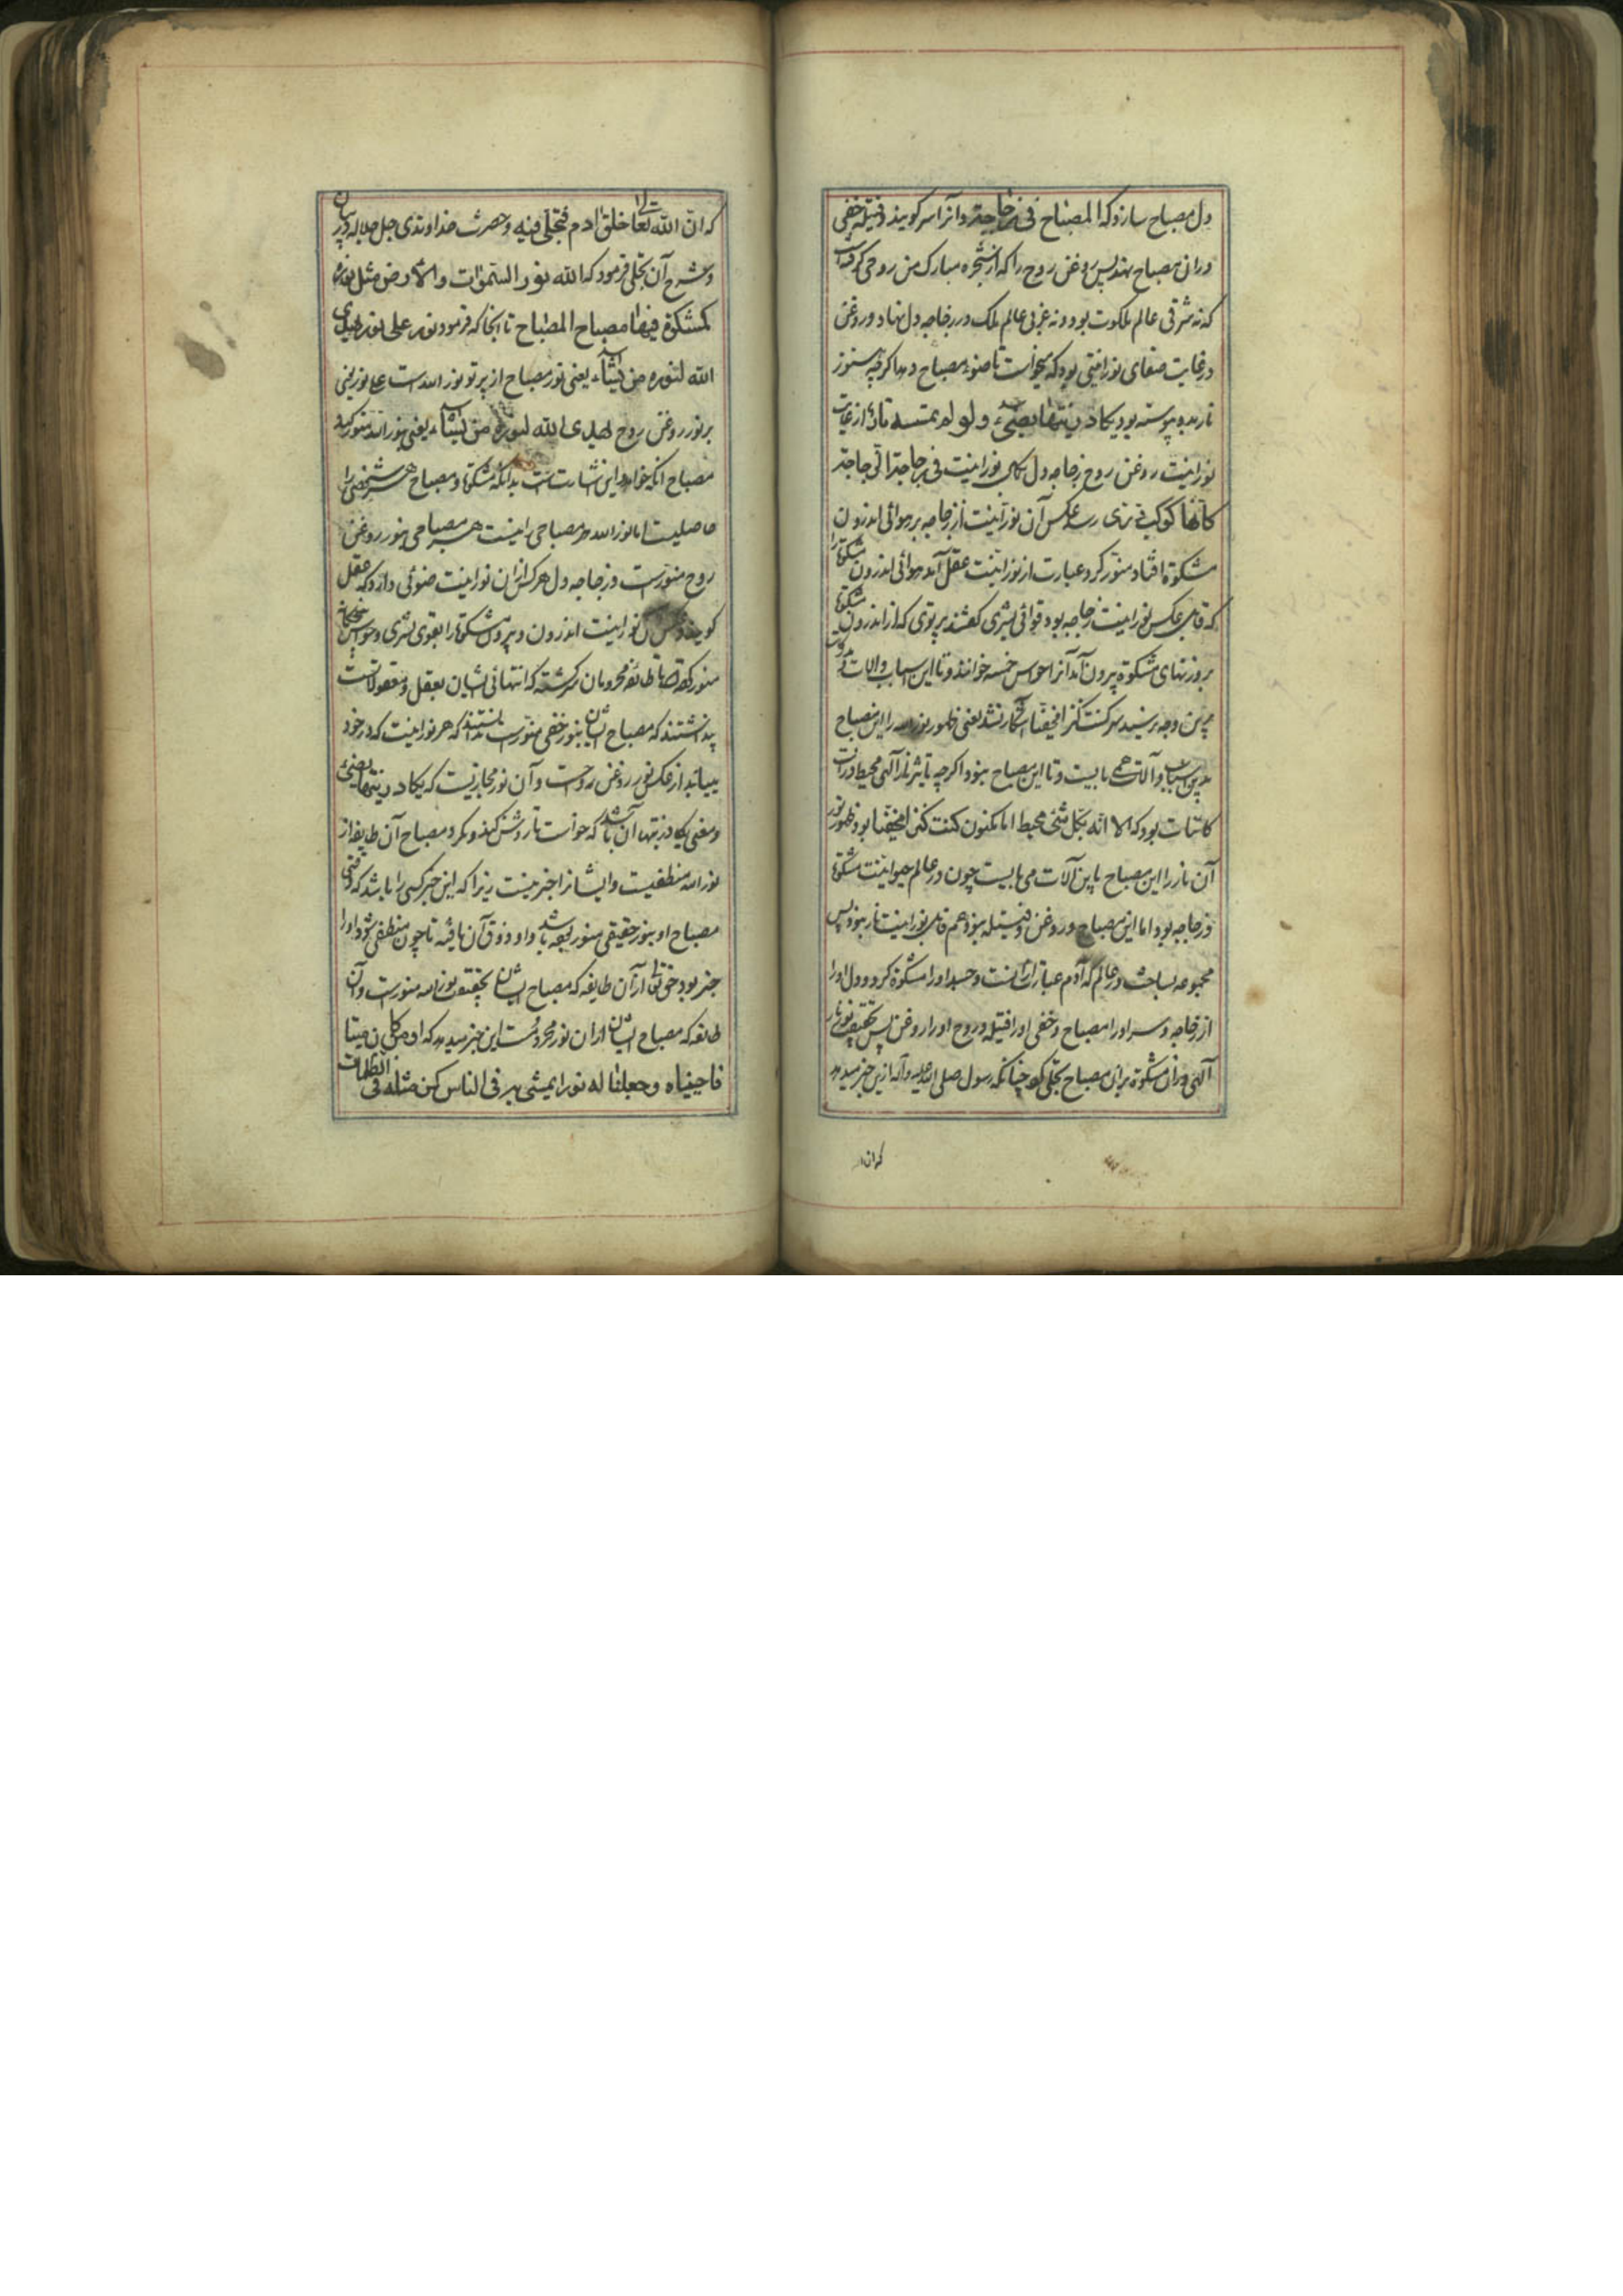 دل مصباح سازد که المصباح فی زجاجة و آنرا سر گویند و فتیله خفی
در ان مصباح نهد پس روغن روح را که از شجره مبارک من روحی گرفته است
که نه شرقی عالم ملکوت بود و نه غربی عالم ملک در زجاجه دل نهاد و روغن
در غایت صفای نورانیتی بود که میخواست تا ضوء مصباح دهد اگرچه هنوز
نار بدو نپیوسته بود یکاد زیتها یضیء ولو لم تمسسه نار از غایت
نورانیت روغن روح زجاجه دل بکمال نورانیت فی زجاجة الزجاجة
کانها کوکب دری رسد عکس آن نورانیت از زجاجه بر هوائی اندرون
مشکوة افتاد منور کرد عبارت از نورانیت عقل آمد هوائی اندرون مشکوة را
که قابل عکس نورانیت زجاجه بود قوائی بشری گفتند پرتوی که از اندرون مشکوة
بروزنهای مشکوة بیرون آمد آنرا حواس خمسه خوانند و تا این اسباب و الات
برین وجه نرسید سر کنت کنزا مخفیا آشکارا نشد یعنی ظهور نور الله را این مصباح
بدین اسباب و آلات همی بایست و تا این مصباح نبود اگرچه نار الهی محیط ذرات
کائنات بود که الا انه بکل شیء محیط اما مکنون کنت کنزا مخفیا بود ظهور نور
آن نار را این مصباح باین آلات می بایست چون در عالم حیوانیت مشکوة
و زجاجه بود اما این مصباح و روغن و فتیله نبود هم قابل نورانیت نار نبود پس
مجموعه بساخت در عالم که آدم عبارت از انست و جسد اورا مشکوة کرد و دل اورا
از زجاجه و سر اورا مصباح و خفی اورا فتیله و روح اورا روغن پس بحقیقت نور نار
آلهی در ان مشکوة بران مصباح تجلی کرد چنانکه رسول صلی الله علیه و آله ازین خبر میدهد
که ان الله
که ان الله تعالی خلق ادم فتجلی فیه و حضرت خداوندی جل جلاله در بیان
و شرح آن تجلی فرمود که الله نور السموات والارض مثل نوره
کمشکوة فیها مصباح المصباح تا انجا که فرمود نور علی نور یهدی
الله لنوره من یشاء یعنی نور مصباح از پرتو نور الله است علی نور یعنی
بر نور روغن روح یهدی الله لنوره من یشاء یعنی بنور الله منور کند
مصباح آنکه خواهد این اشارتست بدانکه مشکوة و مصباح هر شخصی را
حاصلیست اما نور الله هر مصباحی را نیست هر مصباحی بنور روغن
روح منورست و زجاجه دل هر کس از ان نورانیت ضوئی دارد که عقل
گویند و عکس آن نورانیت اندرون و بیرون مشکوة را بقوی بشری و حواس پنجگانه
منور کرده تا طائفه محرومان سرگشته که انتهائی ایشان بعقل و معقولاتست
پنداشتند که مصباح ایشان بنور حقیقی منورست ندانستند که هر نورانیت که در خود
مییابند از عکس نور روغن روحست و آن نور مجازیست که یکاد زیتها یضیء
و معنی یکاد زیتها آن باشد که خواست تا روشن کند و نکرد مصباح آن طایفه از
نور الله منطفیست و ایشانرا خبر نیست زیرا که این خبر کسی را باشد که وقتی
مصباح او بنور حقیقی منور بوده باشد و او ذوق آن یافته تا چون منطفی شود اورا
خبر بود حق تعالی از آن طایفه که مصباح ایشان بحقیقت بنور الله منورست و آن
طائفه که مصباح ایشان از ان نور محرومست این خبر میدهد که او من کان میتا
فاحییناه وجعلنا له نورا یمشی به فی الناس کمن مثله فی الظلمات